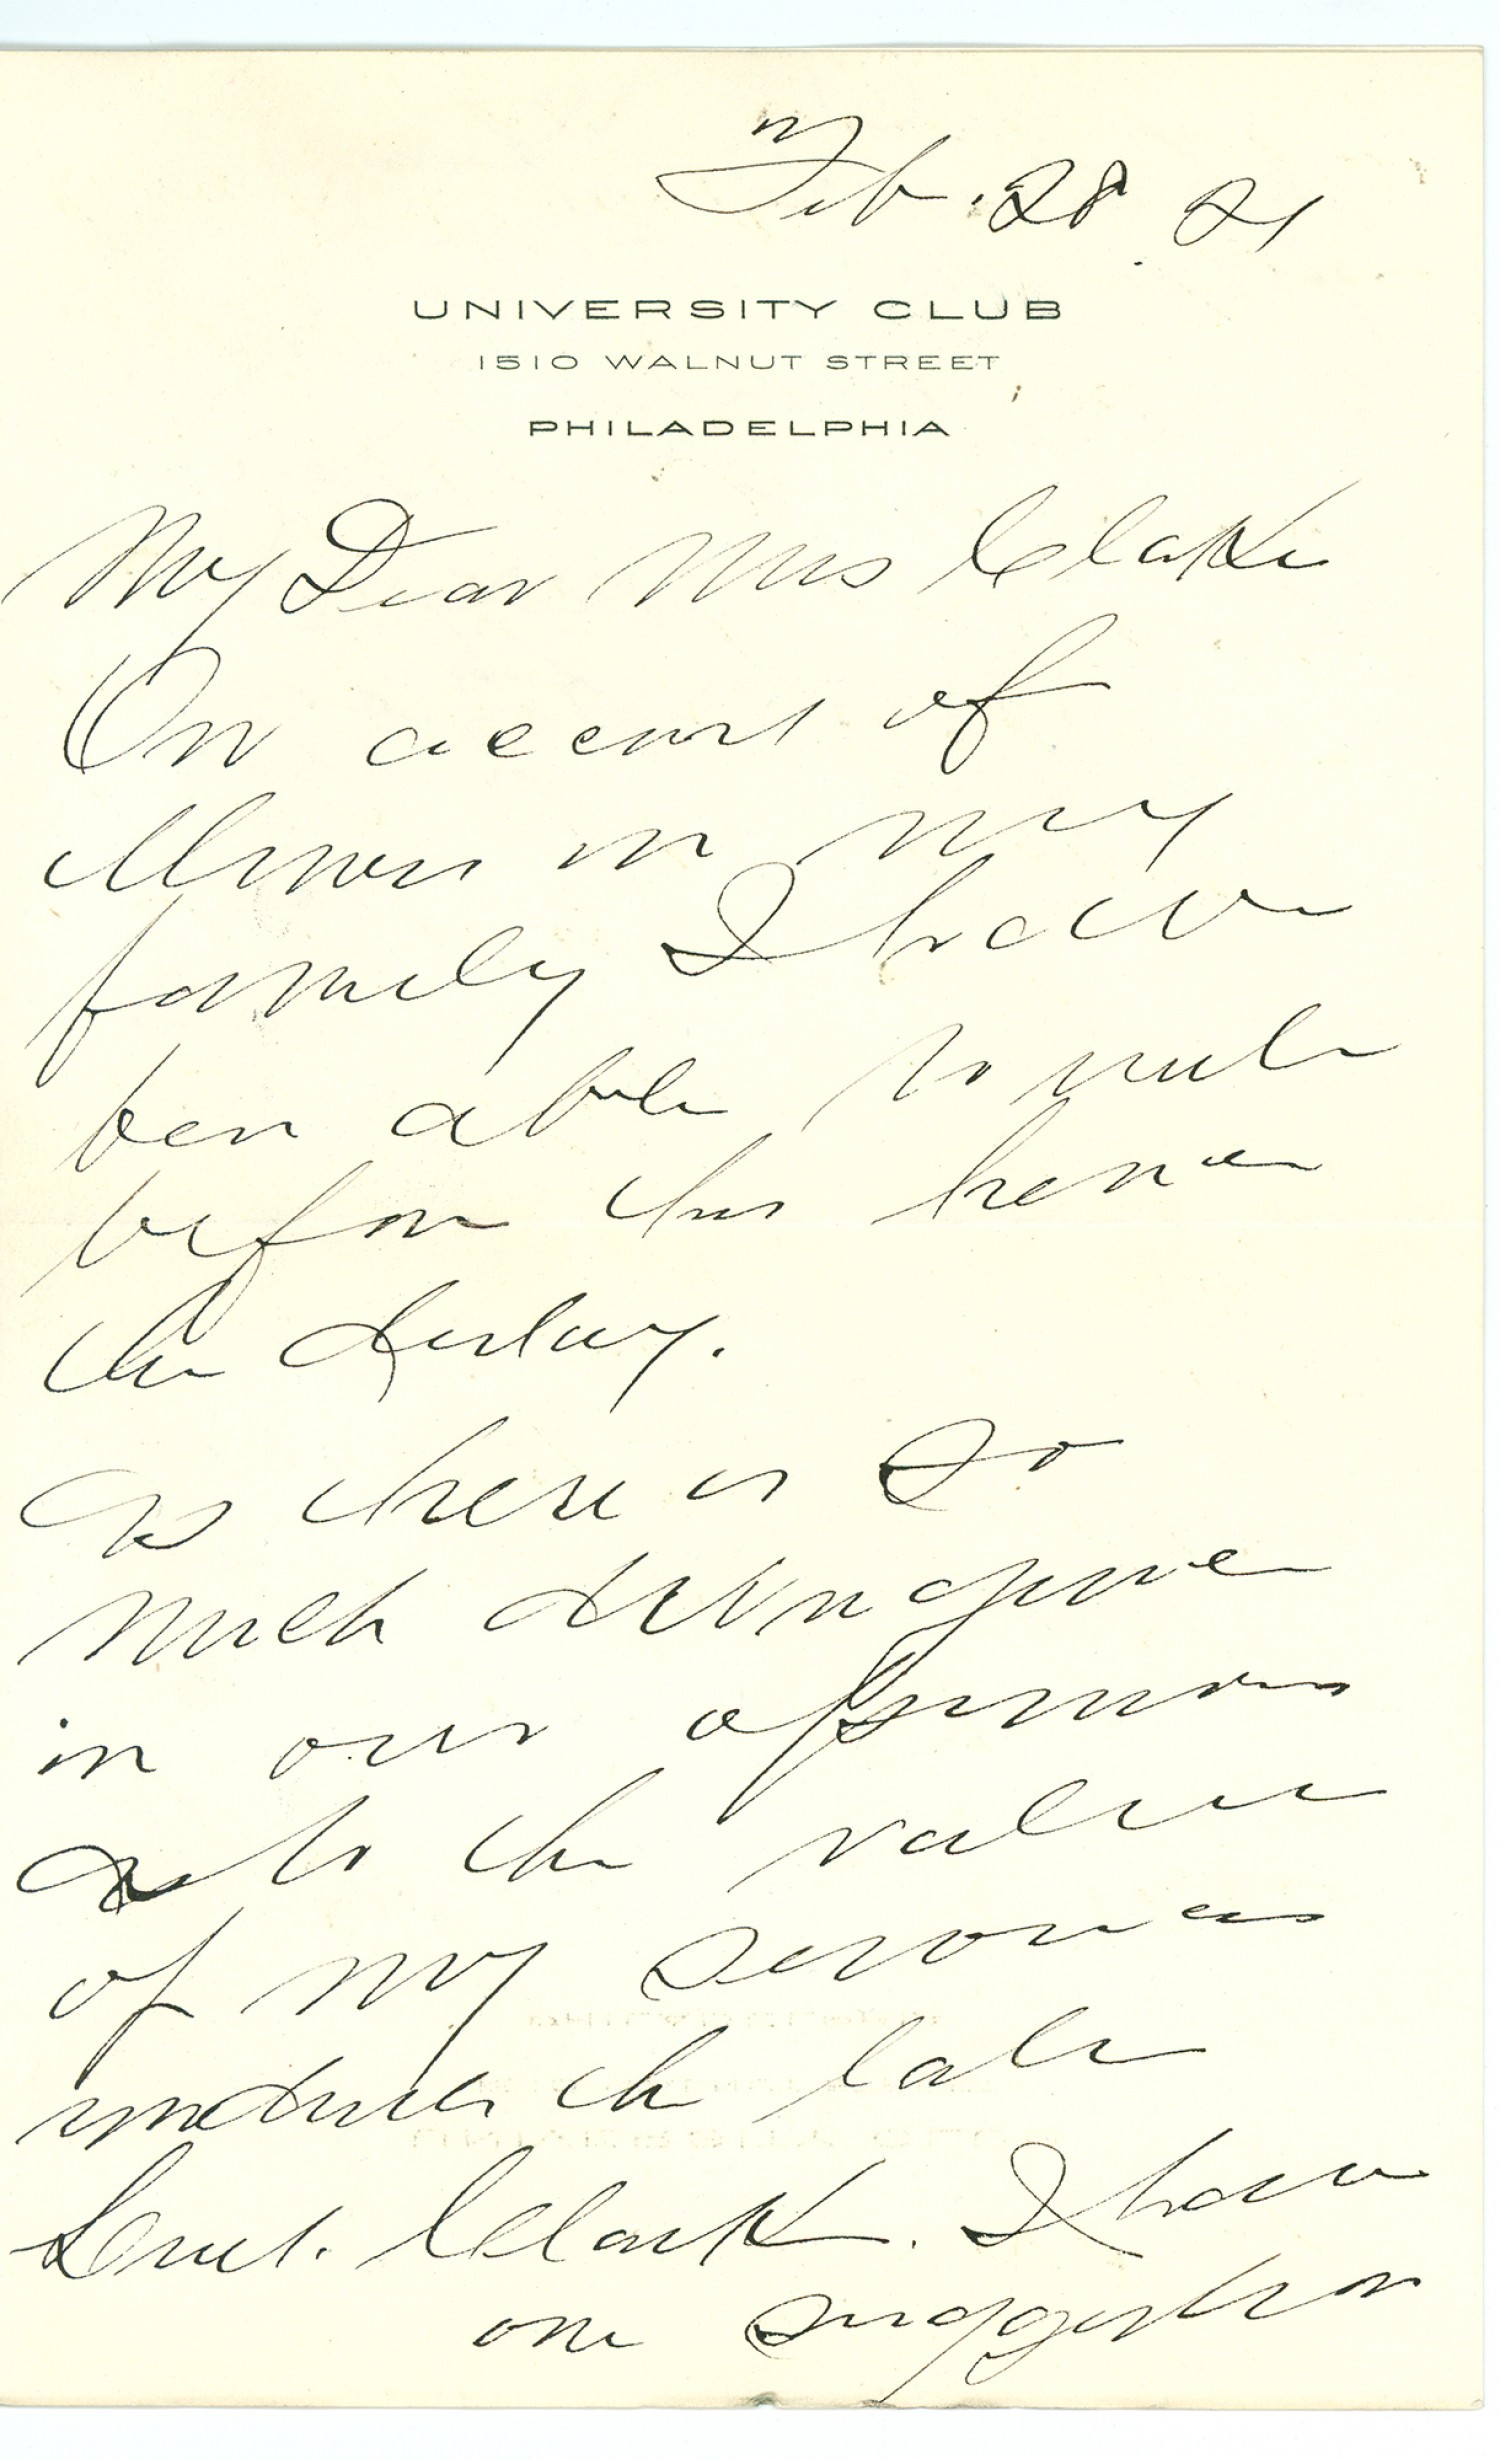 Feb. 28. 21
UNIVERSITY CLUB
1510 WALNUT STREET
PHILADELPHIA
My Dear Mrs Clarke
On account of
illness in my
family I have
been able to write
before this hence
the delay.
As there is so
much divergence
in our opinions
as to the value
of my services
to the late
Lieut. Clark. I have
one suggestion